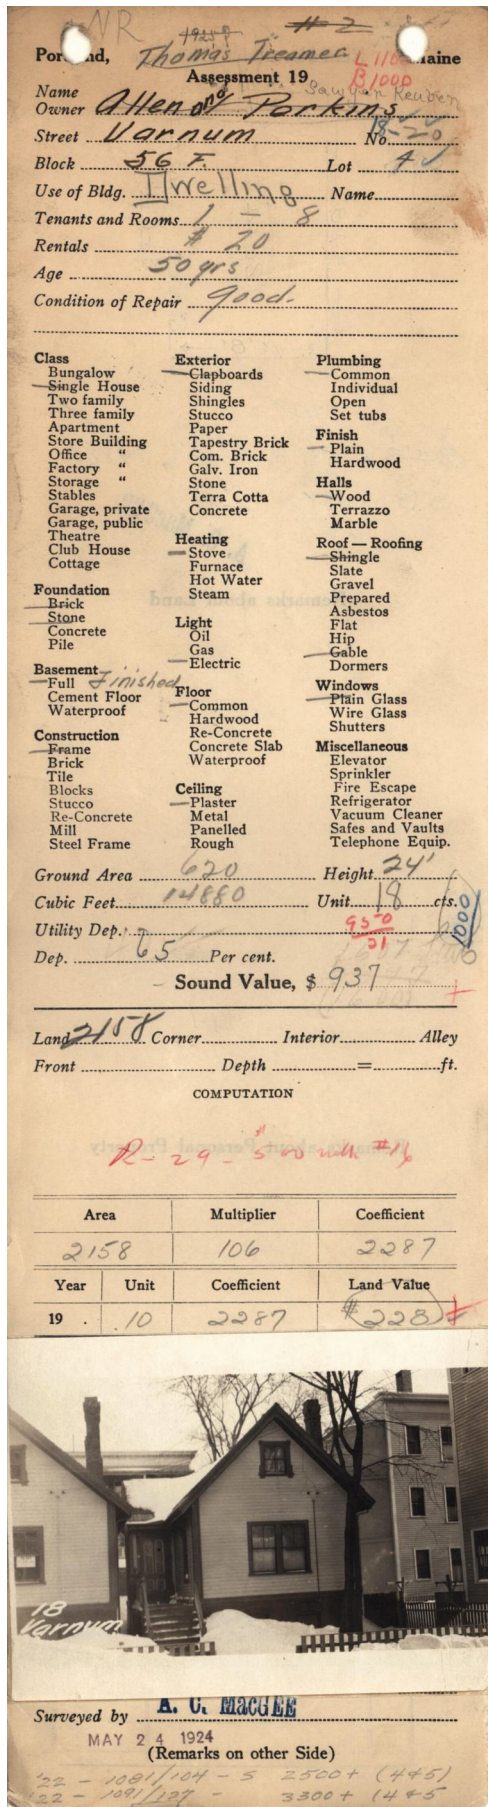 NR
1925 # 2
Portland, Thomas Treamer L 1100 Maine
Assessment 19 B 1000
Sawyer Reuben
Name
Owner Allen Perkins
Street Varnum No. 18-20
Block 56 F. Lot 4
Use of Bldg. Dwelling Name
Tenants and Rooms 1 - 8
Rentals # 20
Age 50 yrs
Condition of Repair good.
Class
Bungalow
Single House
Two family
Three family
Apartment
Store Building
Office "
Factory "
Storage "
Stables
Garage, private
Garage, public
Theatre
Club House
Cottage
Foundation
Brick
Stone
Concrete
Pile
Basement
Full Finished
Cement Floor
Waterproof
Construction
Frame
Brick
Tile
Blocks
Stucco
Re-Concrete
Mill
Steel Frame
Exterior
Clapboards
Siding
Shingles
Stucco
Paper
Tapestry Brick
Com. Brick
Galv. Iron
Stone
Terra Cotta
Concrete
Heating
Stove
Furnace
Hot Water
Steam
Light
Oil
Gas
Electric
Floor
Common
Hardwood
Re-Concrete
Concrete Slab
Waterproof
Ceiling
Plaster
Metal
Panelled
Rough
Plumbing
Common
Individual
Open
Set tubs
Finish
Plain
Hardwood
Halls
Wood
Terrazzo
Marble
Roof — Roofing
Shingle
Slate
Gravel
Prepared
Asbestos
Flat
Hip
Gable
Dormers
Windows
Plain Glass
Wire Glass
Shutters
Miscellaneous
Elevator
Sprinkler
Fire Escape
Refrigerator
Vacuum Cleaner
Safes and Vaults
Telephone Equip.
Ground Area 620 Height 24'
Cubic Feet 14880 Unit 18 cts.
Utility Dep. 950 1000
21
Dep. 65 Per cent.
Sound Value, $ 937
Land 2158 Corner Interior Alley
Front Depth = ft.
COMPUTATION
R - 29 - $500 with #16
Area Multiplier Coefficient
2158 106 2287
Year Unit Coefficient Land Value
19 . 10 2287 # 228 +
18
Varnum
Surveyed by A. C. MacGEE
MAY 24 1924
(Remarks on other Side)
'22 - 1081/104 - S 2500+ (4&5)
'22 - 1091/127 - 3300+ (4&5